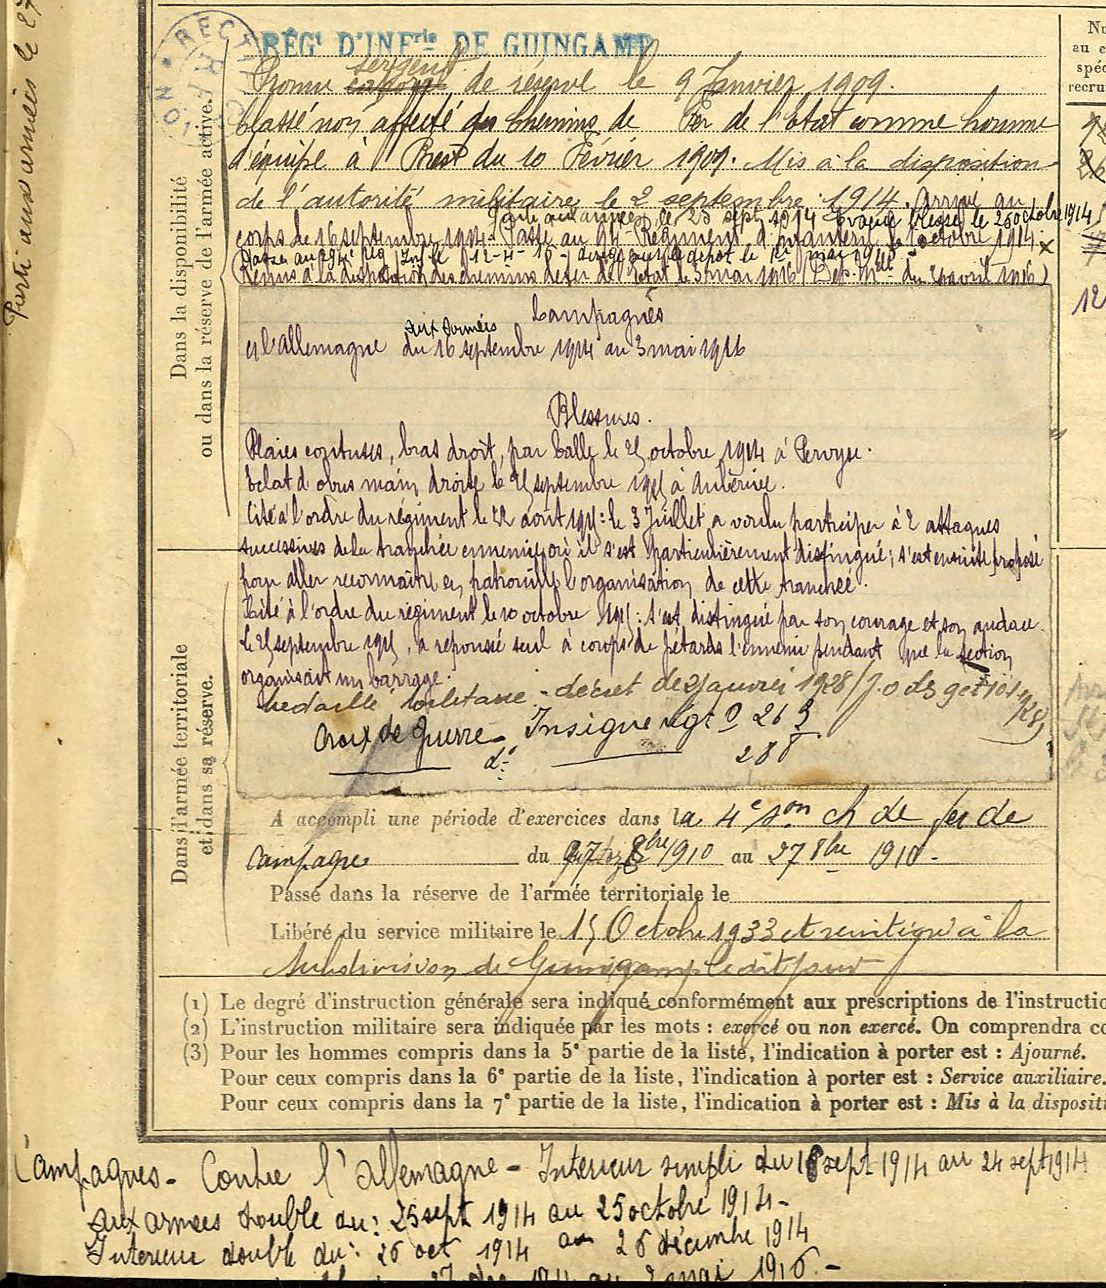 RÉGt D'INFrie DE GUINGAMP
Promu caporal sergent de réserve le 9 Janvier 1909.
Classé non affecté des Chemins de Fer de l'Etat comme homme
d'équipe à Brest du 10 Février 1909. Mis à la disposition
de l'autorité militaire le 2 septembre 1914. Arrivé au
Parti aux armées le 25 sept 1914 Evacué blessé le 25 octobre 1914
corps le 16 septembre 1914. Passé au 94e Régiment d'infanterie le octobre 1914 x
Passé au 294e Rég Inf le 12-4-15 - dirigé sur le dépôt le 1er mai 1916
Remis à la disposition des chemins de fer de l'état le 3 mai 1916 (Dep. Mlle du avril 1916)
Campagnes
aux armées
c/ l'allemagne du 16 septembre 1914 au 3 mai 1916
Blessures.
Plaies contuses, bras droit, par balle le 25 octobre 1914 à Pervyse.
Eclat d'obus main droite le 25 septembre 1915 à Aubérive.
Cité à l'ordre du régiment le 22 août 1915: le 3 Juillet a voulu participer à 2 attaques
successives de la tranchée ennemie où il s'est particulièrement distingué; s'est ensuite proposé
pour aller reconnaître en patrouille l'organisation de cette tranchée.
Cité à l'ordre du régiment le 10 octobre 1915: s'est distingué par son courage et son audace.
Le 25 septembre 1915, a repoussé seul à coups de pétards l'ennemi pendant que la section
organisait un barrage.
Médaille militaire - décret de janvier 1928 / J.O.
Croix de guerre Insigne
288
Dans la disponibilité
ou dans la réserve de l'armée active.
Dans l'armée territoriale
et dans sa réserve.
A accompli une période d'exercices dans la 4e son ch de fer de
campagne du 8bre 1910 au 27 8bre 1910.
Passé dans la réserve de l'armée territoriale le
Libéré du service militaire le 15 Octobre 1933 et
Subdivision de Guingamp le dit jour
(1) Le degré d'instruction générale sera indiqué conformément aux prescriptions de l'instructio
(2) L'instruction militaire sera indiquée par les mots : exercé ou non exercé. On comprendra co
(3) Pour les hommes compris dans la 5e partie de la liste, l'indication à porter est : Ajourné.
Pour ceux compris dans la 6e partie de la liste, l'indication à porter est : Service auxiliaire.
Pour ceux compris dans la 7e partie de la liste, l'indication à porter est : Mis à la dispositi
Campagnes - Contre l'allemagne - Interieur simpl du 16 sept 1914 au 24 sept 1914
aux armées double du: 25 sept 1914 au 25 octobre 1914 -
Interieur double du: 26 oct 1914 au 26 décembre 1914
27 déc 1914 au 2 mai 1916. -
Parti aux armées le 27
Nu
au c
spéc
recru
12